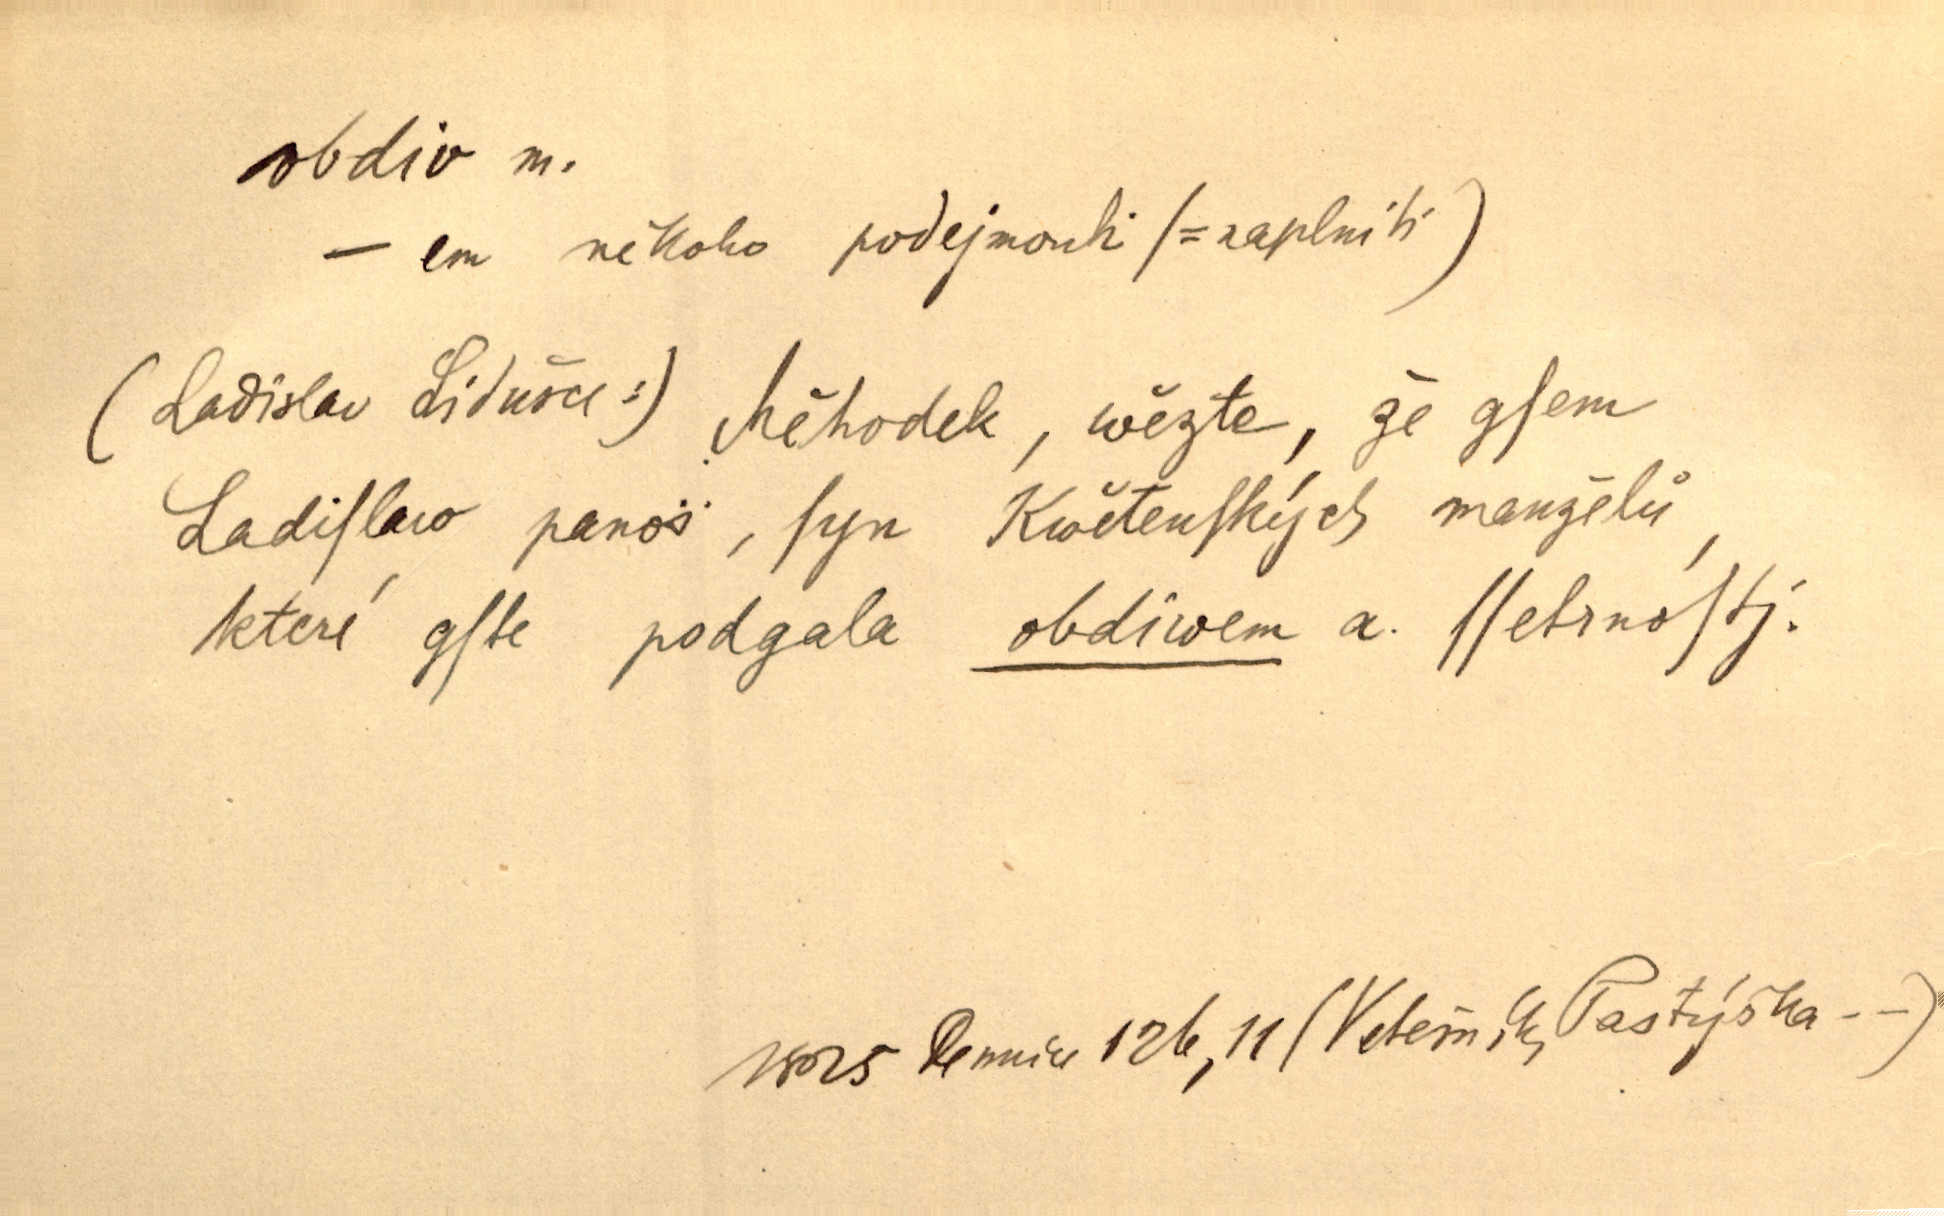 obdiv m.
— em někoho podejmouti (= naplniti)
(Ladislav Lidušce:) Něhodek, wězte, že gſem
Ladiſlaw panoš, ſyn Kwětenſkých manželů,
které gſte podgala obdiwem a ſſetrnoſtj.
1825 Dennice 126, 11 (Vetešník, Pastýřka --)